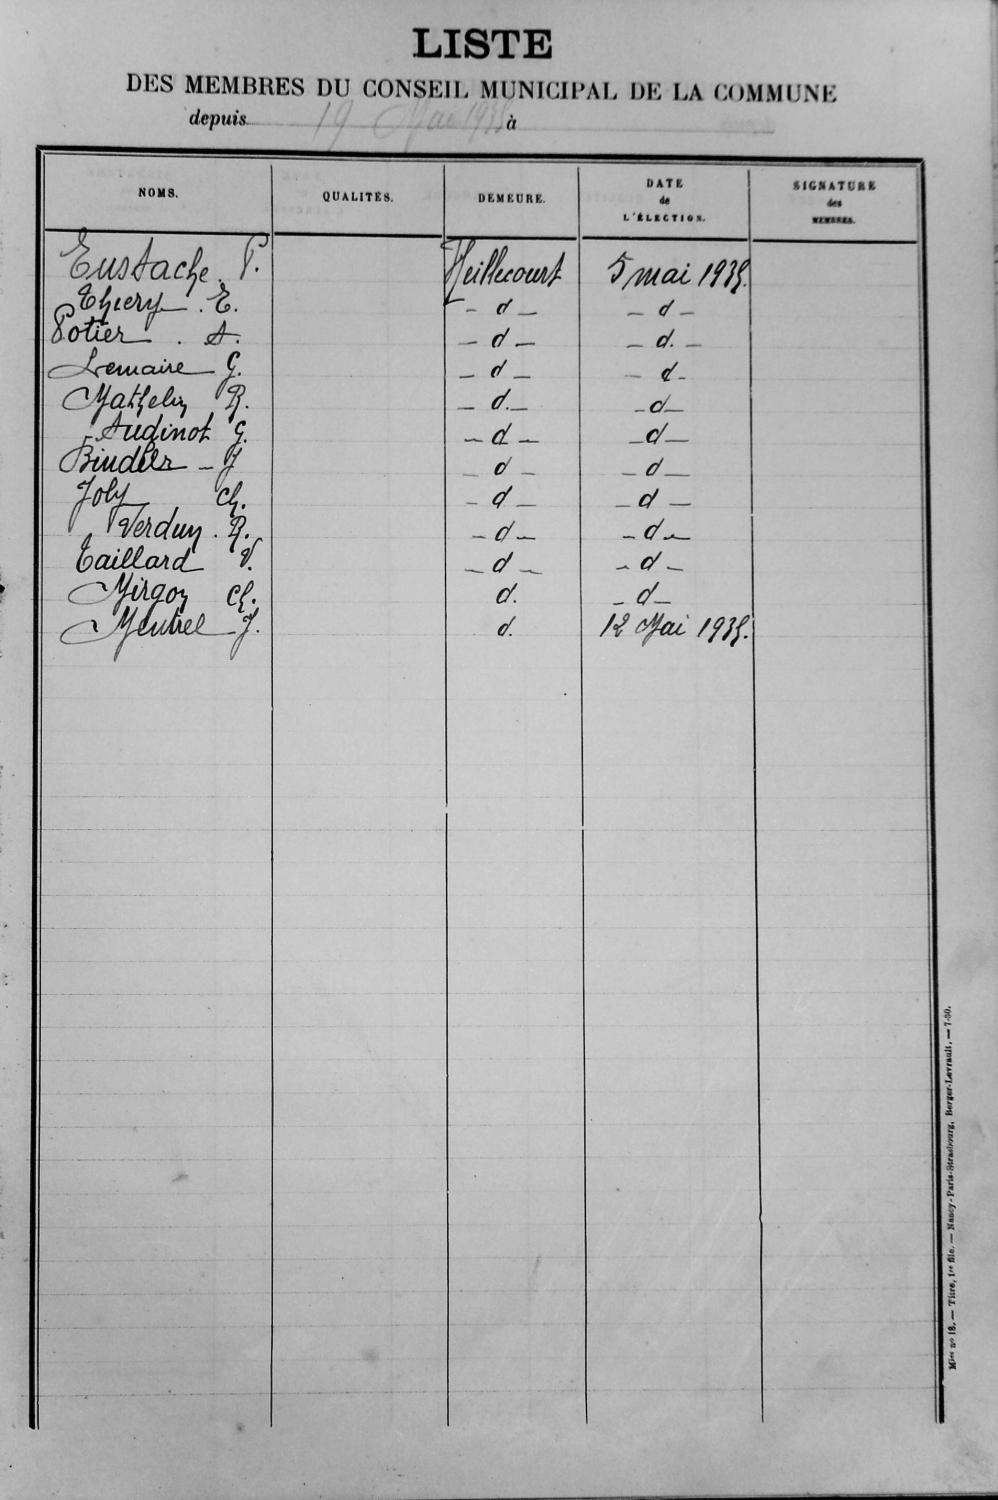 LISTE
DES MEMBRES DU CONSEIL MUNICIPAL DE LA COMMUNE
depuis 19 Mai 1935 à
NOMS. QUALITÉS. DEMEURE. DATE de L'ÉLECTION. SIGNATURE des MEMBRES.
Eustache. P. Heillecourt 5 mai 1935.
Thiery. E. - d - - d -
Potier. A. - d - - d. -
Lemaire G. - d - - d -
Mathelin R. - d. - - d -
Audinot G. - d - - d -
Bindler - J - d - - d -
Joly Ch. - d - - d -
Verdun. R. - d - - d -
Taillard V. - d - - d -
Mirgon Ch. d. - d -
Mentrel J. d. 12 Mai 1935.
Mies no 18. — Titre, 1re file. — Nancy-Paris-Strasbourg, Berger-Levrault. — 7-30.